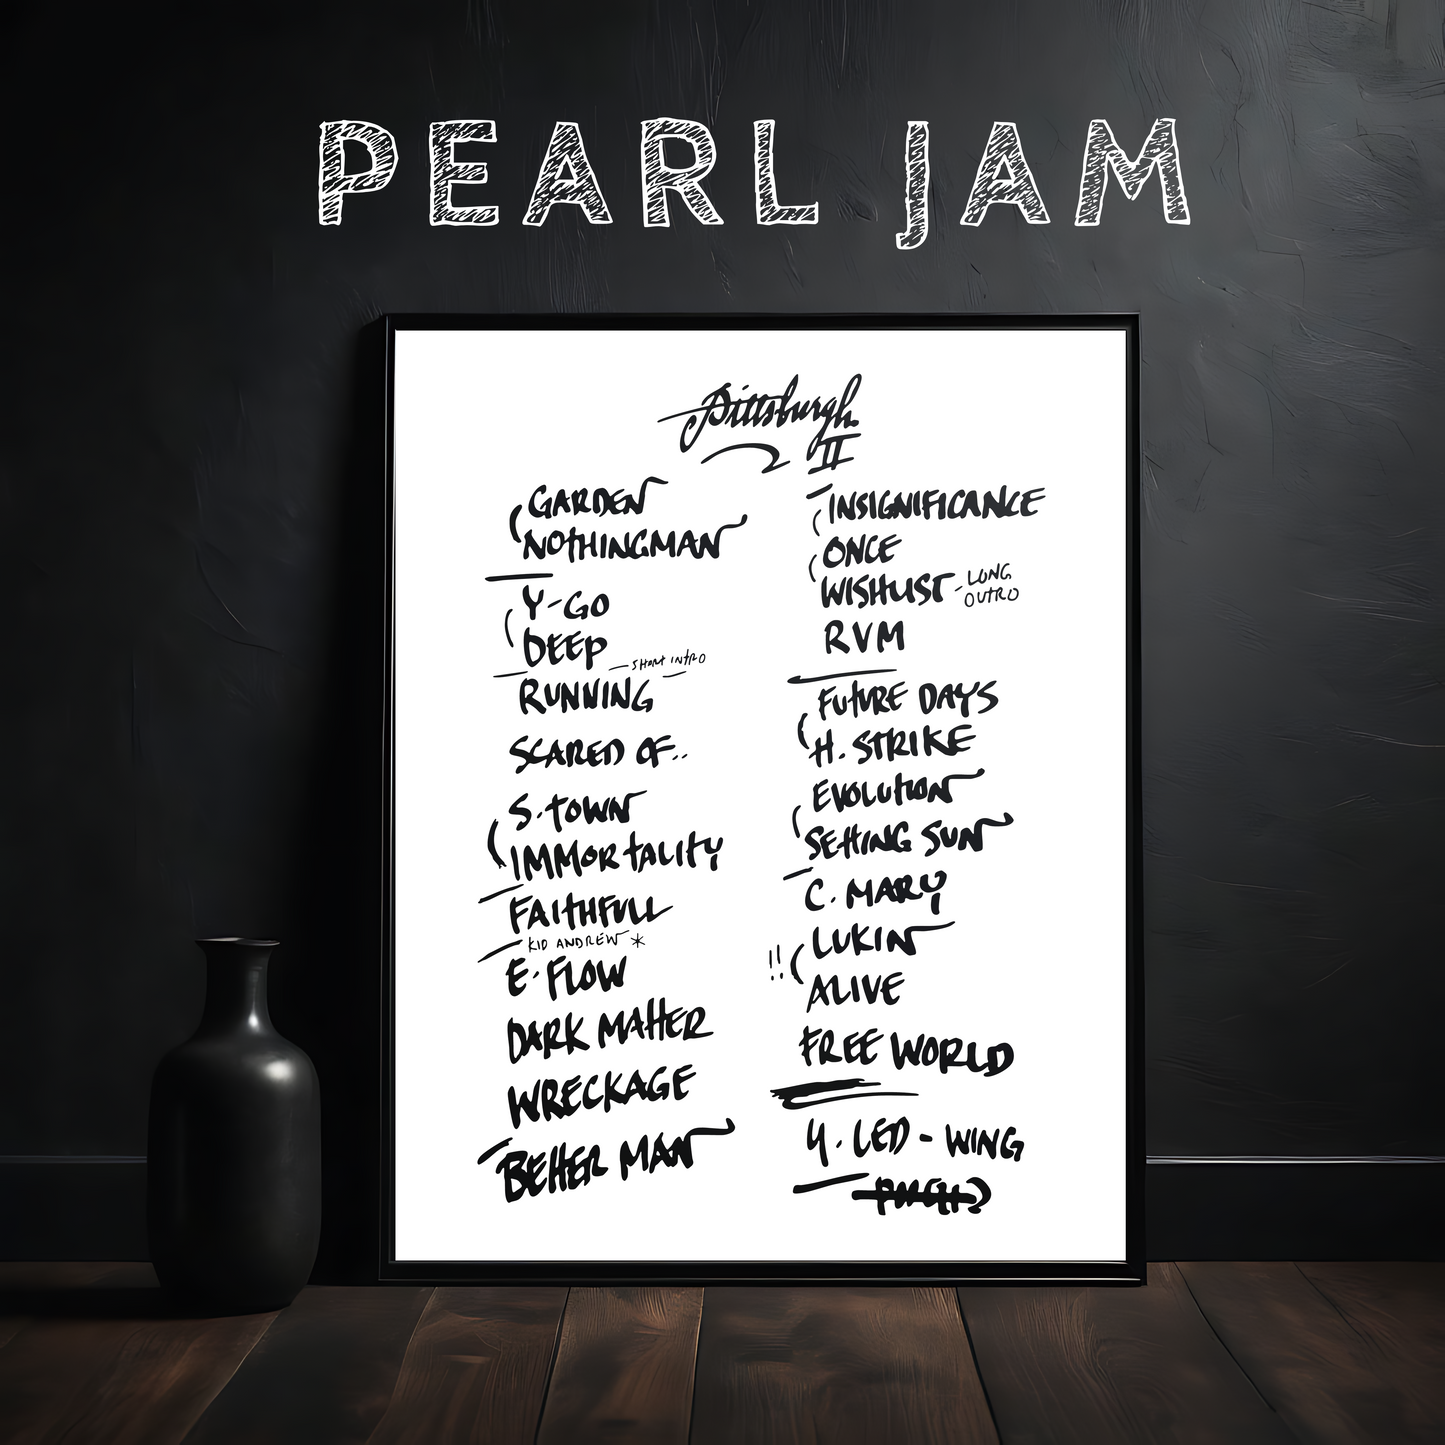 PEARL JAM
Pittsburgh
II
GARDEN
NOTHINGMAN
Y-GO
DEEP - SHORT INTRO
RUNNING
SCARED OF..
S.TOWN
IMMORTALITY
FAITHFULL
KID ANDREW *
E.FLOW
DARK MATTER
WRECKAGE
BETTER MAN
INSIGNIFICANCE
ONCE
WISHLIST - LONG
OUTRO
RVM
FUTURE DAYS
H. STRIKE
EVOLUTION
SETTING SUN
C. MARY
!! LUKIN
ALIVE
FREE WORLD
Y. LED - WING